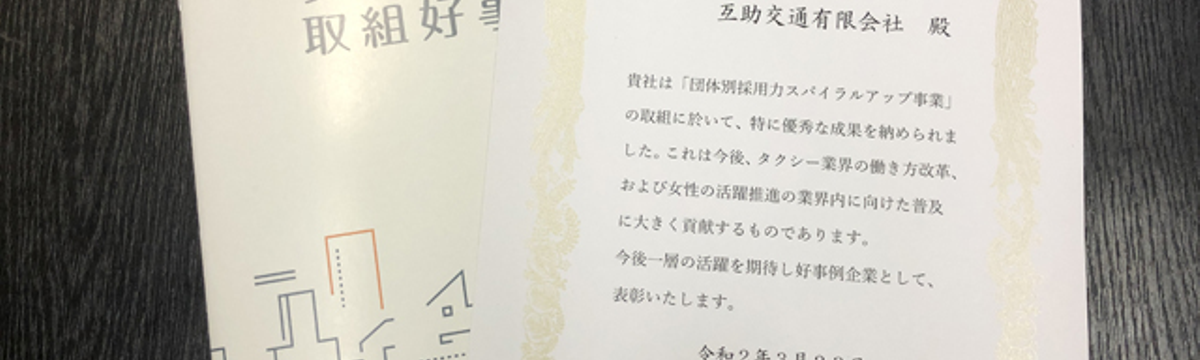 取組好事
互助交通有限会社 殿
貴社は「団体別採用力スパイラルアップ事業」
の取組に於いて、特に優秀な成果を納められま
した。これは今後、タクシー業界の働き方改革、
および女性の活躍推進の業界内に向けた普及
に大きく貢献するものであります。
今後一層の活躍を期待し好事例企業として、
表彰いたします。
令和2年3月